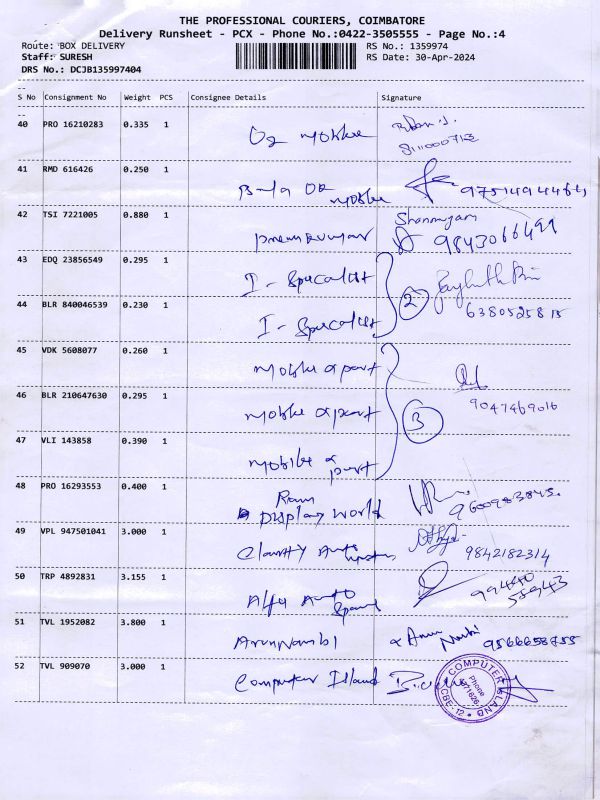 THE PROFESSIONAL COURIERS, COIMBATORE
Delivery Runsheet - PCX - Phone No.:0422-3505555 - Page No.:4
Route: BOX DELIVERY RS No.: 1359974
Staff: SURESH RS Date: 30-Apr-2024
DRS No.: DCJB135997404
S No Consignment No Weight PCS Consignee Details Signature
40 PRO 16210283 0.335 1
Mobile
41 RMD 616426 0.250 1
Mobile 9751494464
42 TSI 7221005 0.880 1
Shanmugam
Premkumar 9843066499
43 EDQ 23856549 0.295 1
I - Specalist
2
44 BLR 840046539 0.230 1
I - Specalist 6380525815
45 VDK 5608077 0.260 1
Mobile & part
46 BLR 210647630 0.295 1
Mobile & part 9047469016
3
47 VLI 143858 0.390 1
Mobile & part
48 PRO 16293553 0.400 1
Ram
Display World 9600983845.
49 VPL 947501041 3.000 1
Clarity Auto 9842182314
50 TRP 4892831 3.155 1
Alfa Auto 99440
Spares 58943
51 TVL 1952082 3.800 1
ArunNambi Arun Nambi 9566658755
52 TVL 909070 3.000 1
Computer Island
COMPUTER ISLAND
CBE-12
Phone